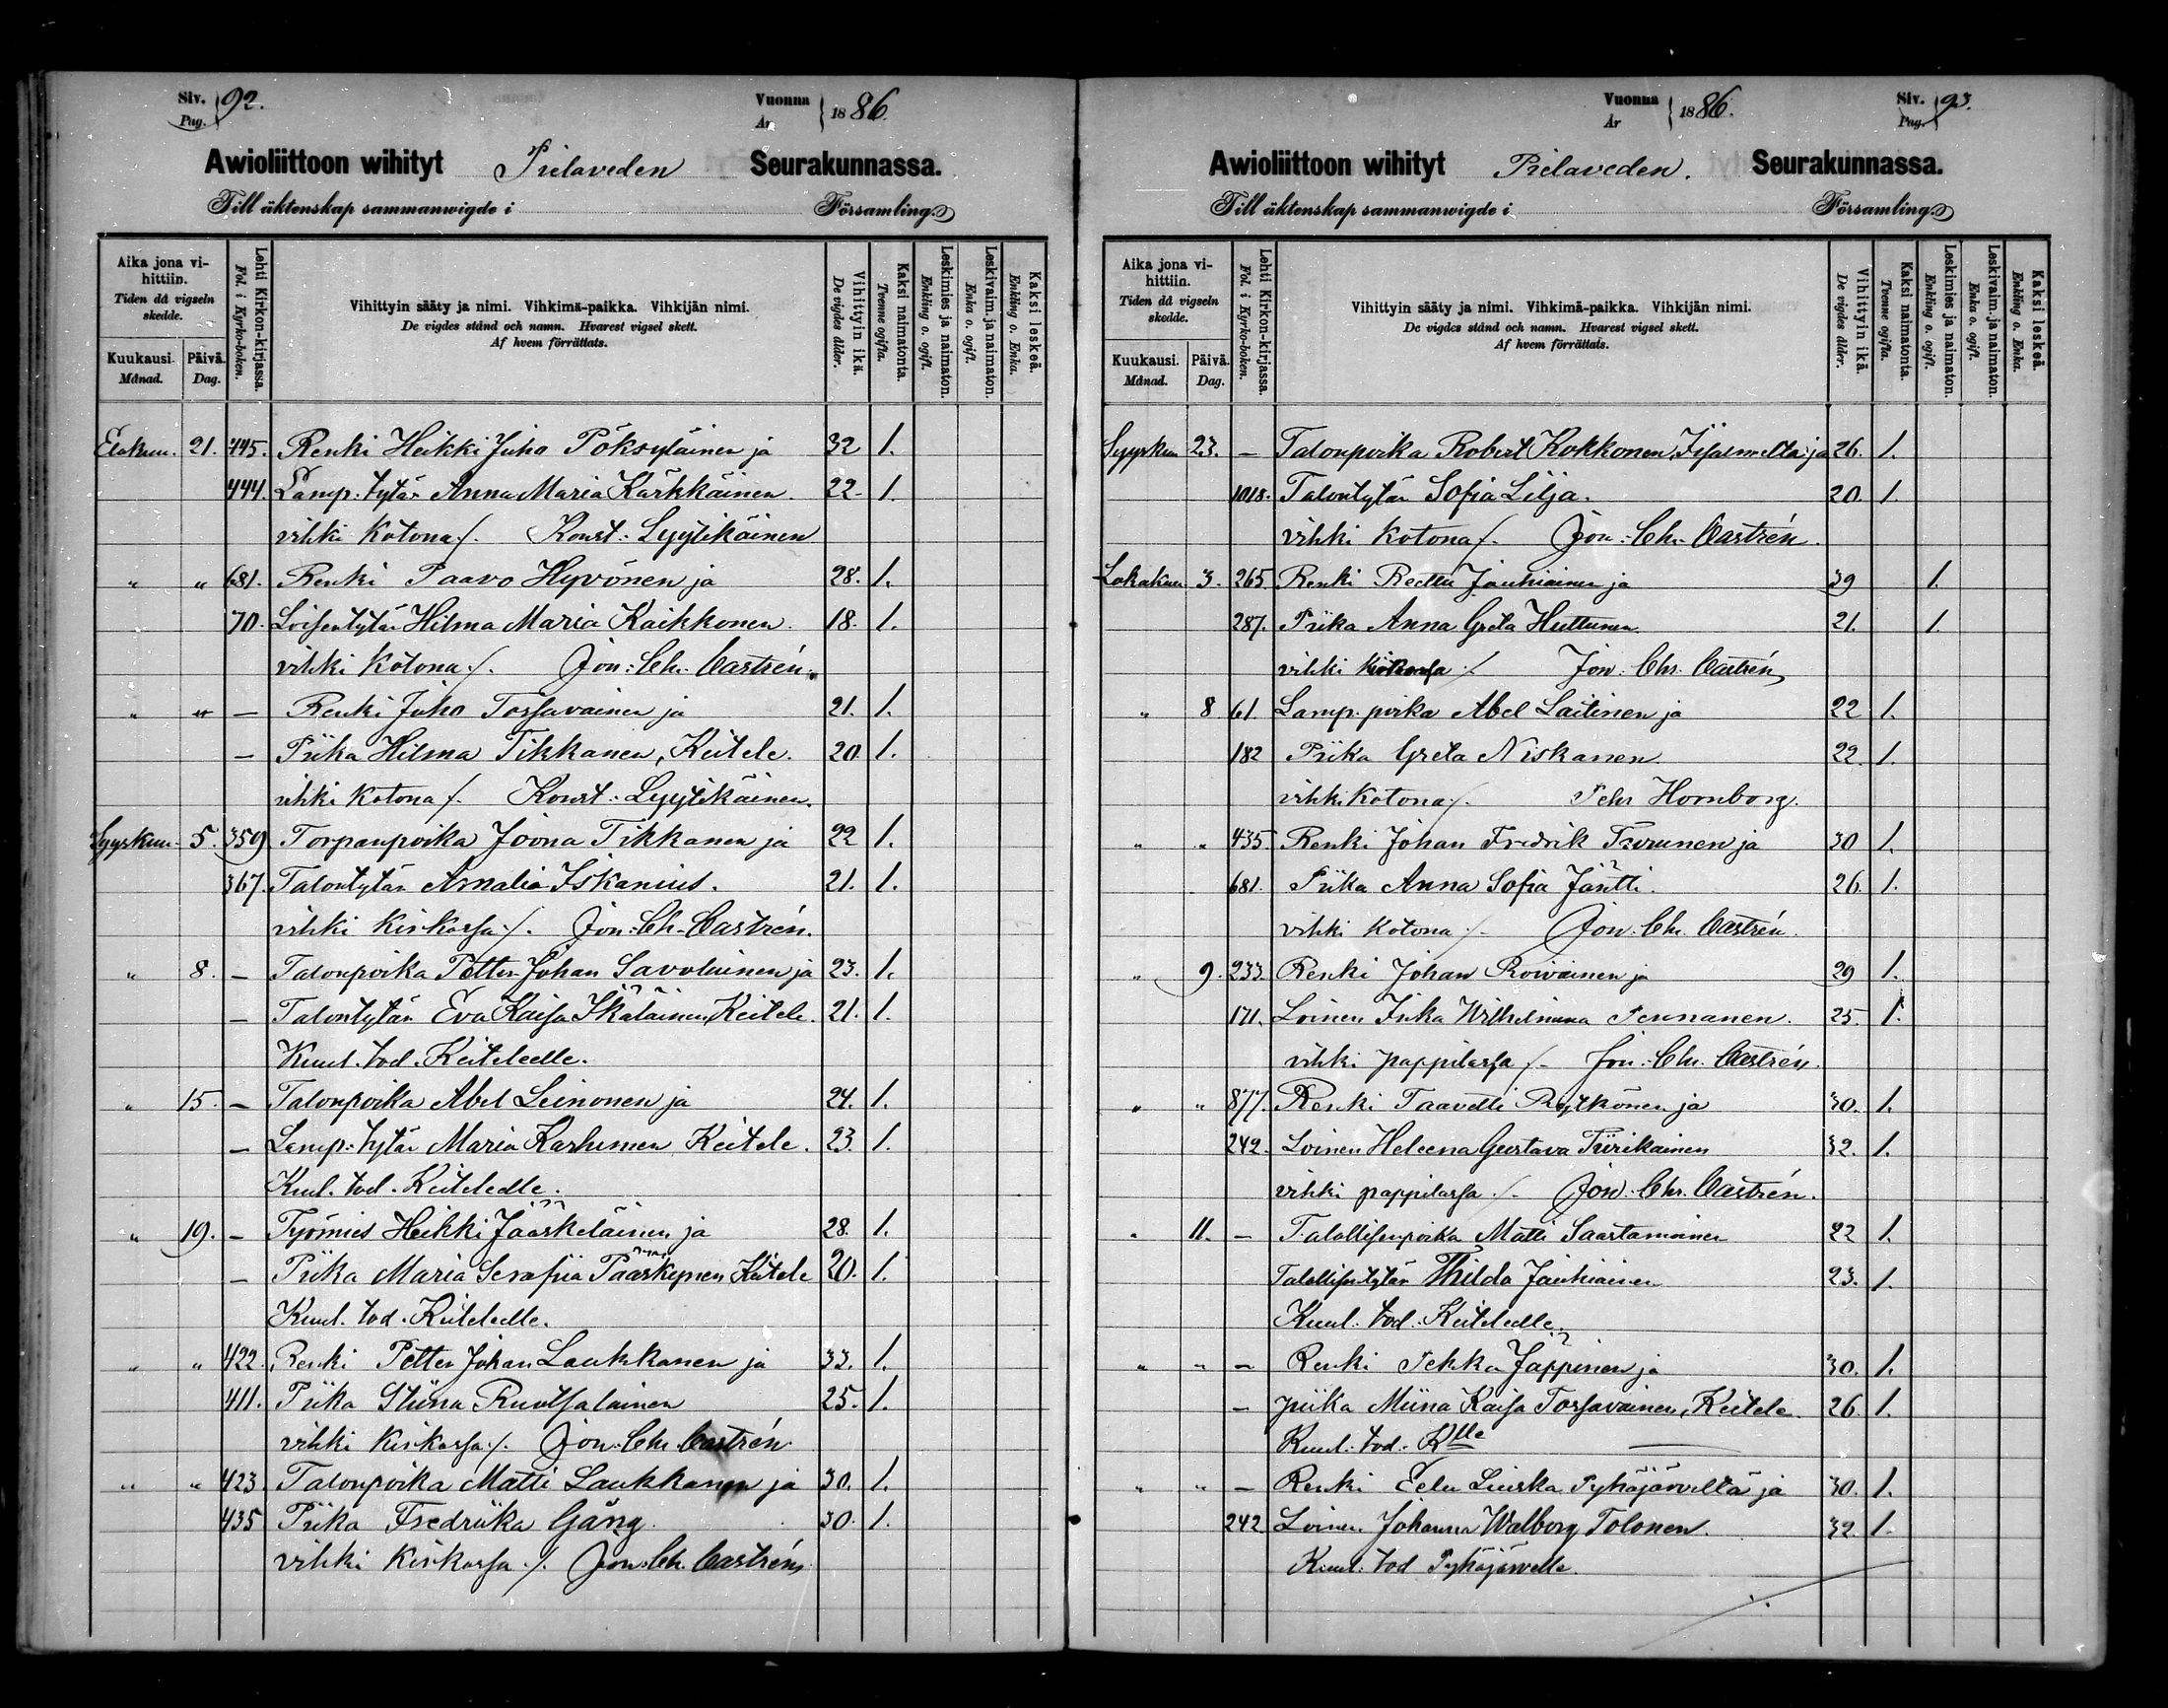 Siv. Pag. 92.
Vuonna År 1886.
Awioliittoon wihityt Pielaveden Seurakunnassa.
Till äktenskap sammanwigde i Församling.
Aika jona vihittiin. Tiden då vigseln skedde.
Kuukausi. Månad.
Päivä. Dag.
Lehti Kirkon-kirjassa. Fol. i Kyrko-boken.
Vihittyin sääty ja nimi. Vihkimä-paikka. Vihkijän nimi.
De vigdes stånd och namn. Hvarest vigsel skett.
Af hvem förrättats.
Vihittyin ikä. De vigdes ålder.
Kaksi naimatonta. Tvenne ogifta.
Leskimies ja naimaton. Enkling o. ogift.
Leskivaim. ja naimaton. Enka o. ogift.
Kaksi leskeä. Enkling o. Enka.
Elokuu. 21. 445. Renki Heikki Juho Pöksyläinen ja 32 1.
444. Lamp. tytär Anna Maria Kärkkäinen. 22. 1.
vihki kotona /. Konst. Lyytikäinen
" " 681. Renki Paavo Hyvönen ja 28. 1.
70. Loisentytär Hilma Maria Kaikkonen. 18. 1.
vihki kotona /. Jon. Chr. Castrén.
" " — Renki Juho Tossavainen ja 21. 1.
— Piika Hilma Tikkanen, Keitele. 20. 1.
vihki kotona /. Konst. Lyytikäinen.
Syyskuu 5. 359. Torpanpoika Joona Tikkanen ja 22 1.
367. Talontytär Amalia Iskanius. 21. 1.
vihki kirkossa /. Jon. Ch. Castrén.
" 8. — Talonpoika Petter Johan Savolainen ja 23. 1.
— Talontytär Eva Kaisa Ikäläinen, Keitele. 21. 1.
Kuul. tod. Keiteleelle.
" 15. — Talonpoika Abel Leinonen ja 24. 1.
— Lamp. tytär Maria Karhunen, Keitele. 23. 1.
Kuul. tod. Keiteleelle.
" 19. — Työmies Heikki Jääskeläinen ja 28. 1.
— Piika Maria Serafiia Pääskynen Keitele 20. 1.
Kuul. tod. Keiteleelle.
" " 422. Renki Petter Johan Laukkanen ja 33. 1.
411. Piika Stiina Ruotsalainen 25. 1.
vihki kirkossa /. Jon. Chr. Castrén
" " 423 Talonpoika Matti Laukkanen ja 30. 1.
435 Piika Fredriika Gång. 30. 1.
vihki kirkossa /. Jon. Ch. Castrén
Vuonna År 1886.
Siv. Pag. 93.
Awioliittoon wihityt Pielaveden. Seurakunnassa.
Till äktenskap sammanwigde i Församling.
Aika jona vihittiin. Tiden då vigseln skedde.
Kuukausi. Månad.
Päivä. Dag.
Lehti Kirkon-kirjassa. Fol. i Kyrko-boken.
Vihittyin sääty ja nimi. Vihkimä-paikka. Vihkijän nimi.
De vigdes stånd och namn. Hvarest vigsel skett.
Af hvem förrättats.
Vihittyin ikä. De vigdes ålder.
Kaksi naimatonta. Tvenne ogifta.
Leskimies ja naimaton. Enkling o. ogift.
Leskivaim. ja naimaton. Enka o. ogift.
Kaksi leskeä. Enkling o. Enka.
Syyskuu 23. — Talonpoika Robert Kokkonen, Iisalmelta ja 26. 1.
1018. Talontytär Sofia Lilja. 20. 1.
vihki kotona /. Jon. Chr. Castrén.
Lokakuu 3. 265. Renki Reettu Jauhiainen ja 39 1.
287. Piika Anna Greta Huttunen. 21. 1.
vihki /. Jon. Chr. Castrén
" 8 61. Lamp. poika Abel Laitinen ja 22 1.
182 Piika Greta Niskanen 22. 1.
vihki kotona /. Pehr Hornborg.
" " 435. Renki Johan Fredrik Turunen ja 30 1.
681. Piika Anna Sofia Jäntti. 26. 1.
vihki kotona /. Jon. Chr. Castrén.
" 9. 233. Renki Johan Roivainen ja 29 1.
171. Loinen Wilhelmiina Pennanen. 25. 1.
vihki pappilassa /. Jon. Chr. Castrén.
" " 877. Renki Taavetti Rytkönen ja 30. 1.
242. Loinen Heleena Gustava Tiirikainen 32. 1.
vihki pappilassa /. Jon. Chr. Castrén.
" 11. — Talollisenpoika Matti Saastamoinen 22 1.
Talollisentytär Thilda Jauhiainen 23. 1.
Kuul. tod. Keiteleelle.
" " — Renki Pekka Jäppinen ja 30. 1.
— piika Miina Kaisa Tossavainen, Keitele. 26. 1.
Kuul. tod. Klle
" " — Renki Eelu Liuska Pyhäjärveltä ja 30. 1.
242 Loinen Johanna Walborg Tolonen. 32. 1.
Kuul. tod Pyhäjärvelle.